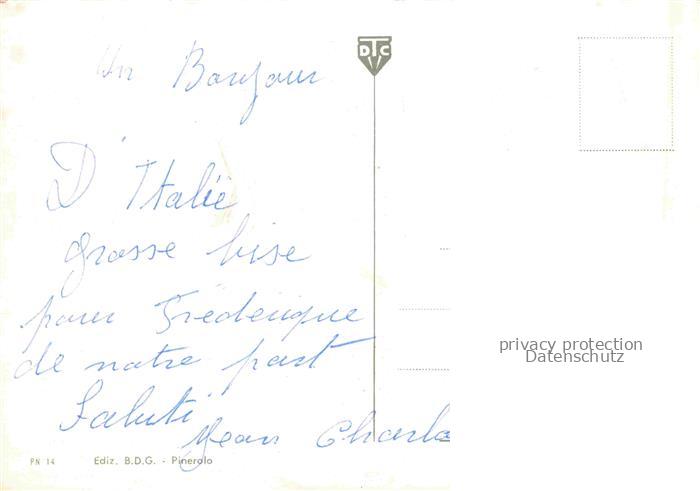 Un Bonjour
D'Italie
grosse bise
pour Fréderique
de notre part
Saluti
Jean Charle
DTC
privacy protection
Datenschutz
PN 14 Ediz. B.D.G. - Pinerolo